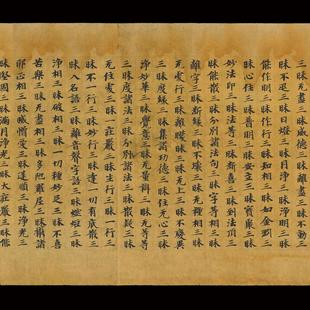 三昧无盡三昧威德三昧離盡三昧不動三
昧不退三昧日燈三昧月淨三昧淨明三昧
能作明三昧作行三昧知相三昧如金剛三
昧心住三昧普明三昧安立三昧寶聚三昧
妙法印三昧法等三昧斷喜三昧到法頂三
昧能散三昧分別諸法句三昧字等相三昧
離字三昧斷緣三昧不壞三昧无種相三昧
无處行三昧離曚昧三昧无去三昧不變異
三昧度緣三昧集諸功德三昧住无心三昧
淨妙華三昧覺意三昧无量辯三昧无等等
三昧度諸法三昧分別諸法三昧散疑三昧
无住處三昧一莊嚴三昧生行三昧一行三
昧不一行三昧妙行三昧達一切有底散三
昧入名語三昧離音聲字語三昧燃炬三昧
淨相三昧破相三昧一切種妙足三昧不喜
苦樂三昧无盡相三昧多陀羅尼三昧攝諸
邪正相三昧滅憎愛三昧逆順三昧淨光三
昧堅固三昧滿月淨光三昧大莊嚴三昧能